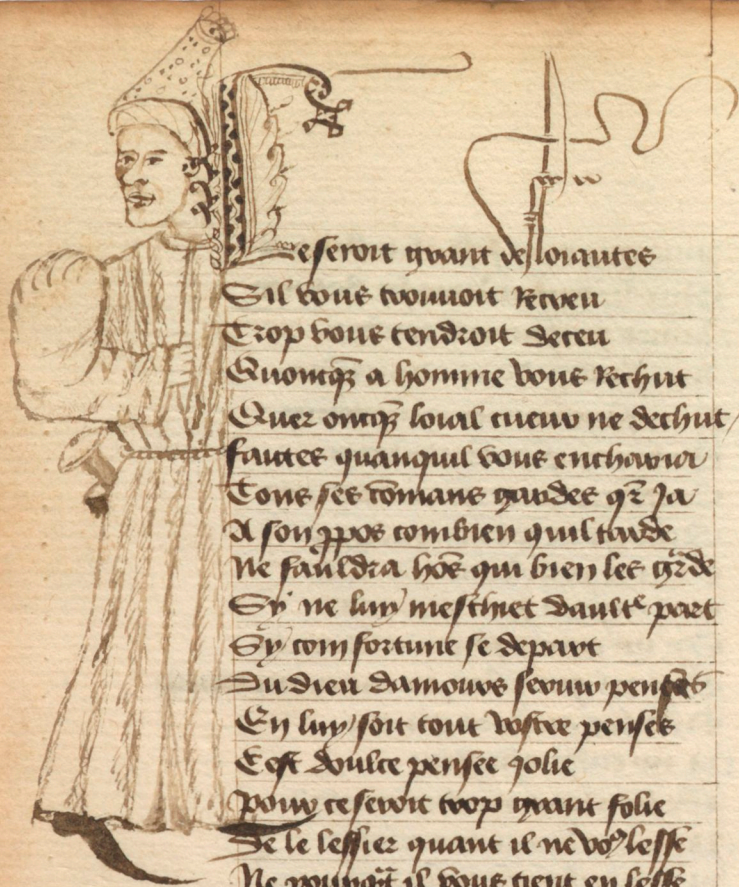 Ce seroit grant desloiautes
Sil vous trouvoit Recreu
Trop vous tendroit deceu
Quoncqȝ a homme vous Rechut
Quer oncqȝ loial cueur ne dechut
faites quanquil vous enchar
Tous ses comans gardes qr Ja
A son ppos combien quil tarde
Ne fauldra hoe qui bien les grde
Sy ne luy meschiet daulte part
Sy com fortune se depart
Du dieu damours servir penses
En luy soit tout vostre penses
Cest doulce pensee jolie
Pour ce seroit trop grant folie
De le lessier quant il ne voꝯ lesse
Ne il vous tient en lesse